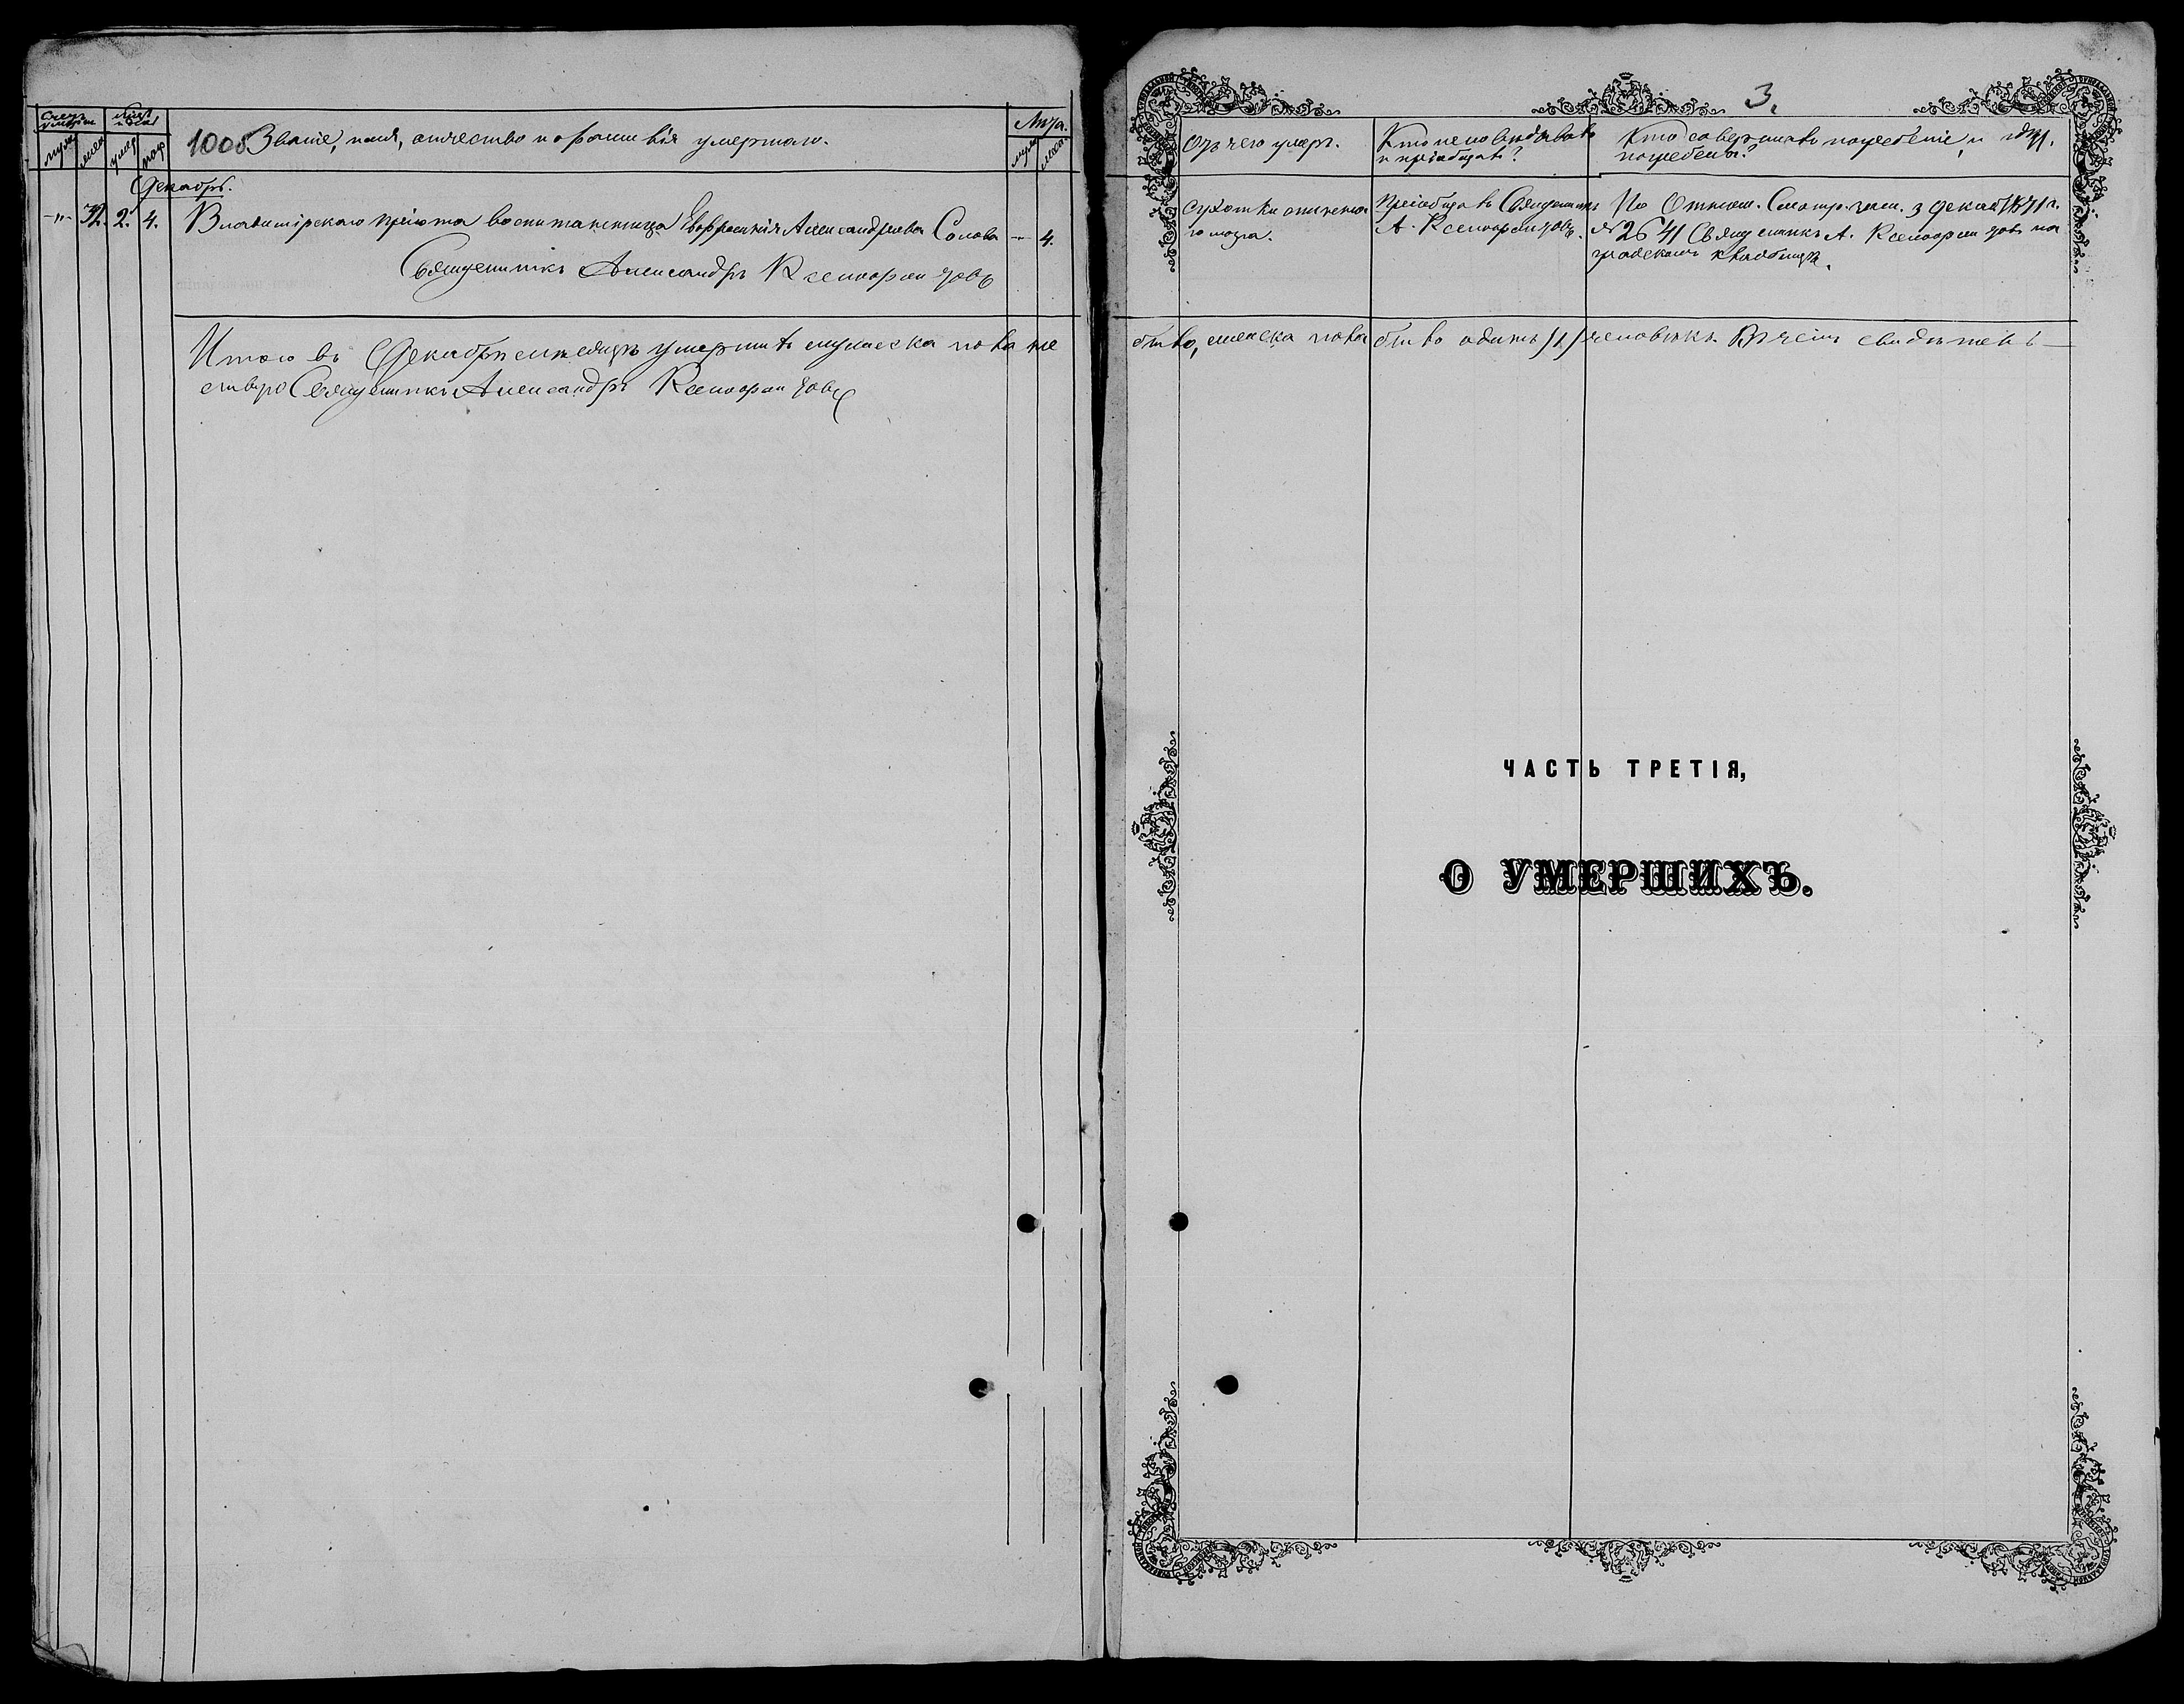 Счетъ умерш.
муж. жен.
умер. пог.
1006 Званіе, имя, отчество и фамилія умершаго.
Лѣта.
муж. жен.
Декабрь.
-"- 32. 2. 4. Владимірскаго пріюта воспитанница Евфросинія Александрова Сомова — 4.
Священникъ Александръ Ксенофонтовъ
Итого въ Декабрѣ мѣсяцѣ умершихъ мужеска пола не
Священникъ Александръ Ксенофонтовъ
3.
Отъ чего умеръ.
Кто исповѣдывалъ
и пріобщалъ?
Кто совершалъ погребеніе, и гдѣ
погребены?
Сухотки спинна
го мозга.
Пріобщалъ Священникъ
А. Ксенофонтовъ.
По Отнош. Смотр. 3 Декаб. 1871 г.
№ 2641 Священникъ А. Ксенофонтовъ на
градскомъ кладбищѣ.
было, женска пола было одинъ /1/ человѣкъ. Въ чемъ свидѣтель
ЧАСТЬ ТРЕТІЯ,
О УМЕРШИХЪ.